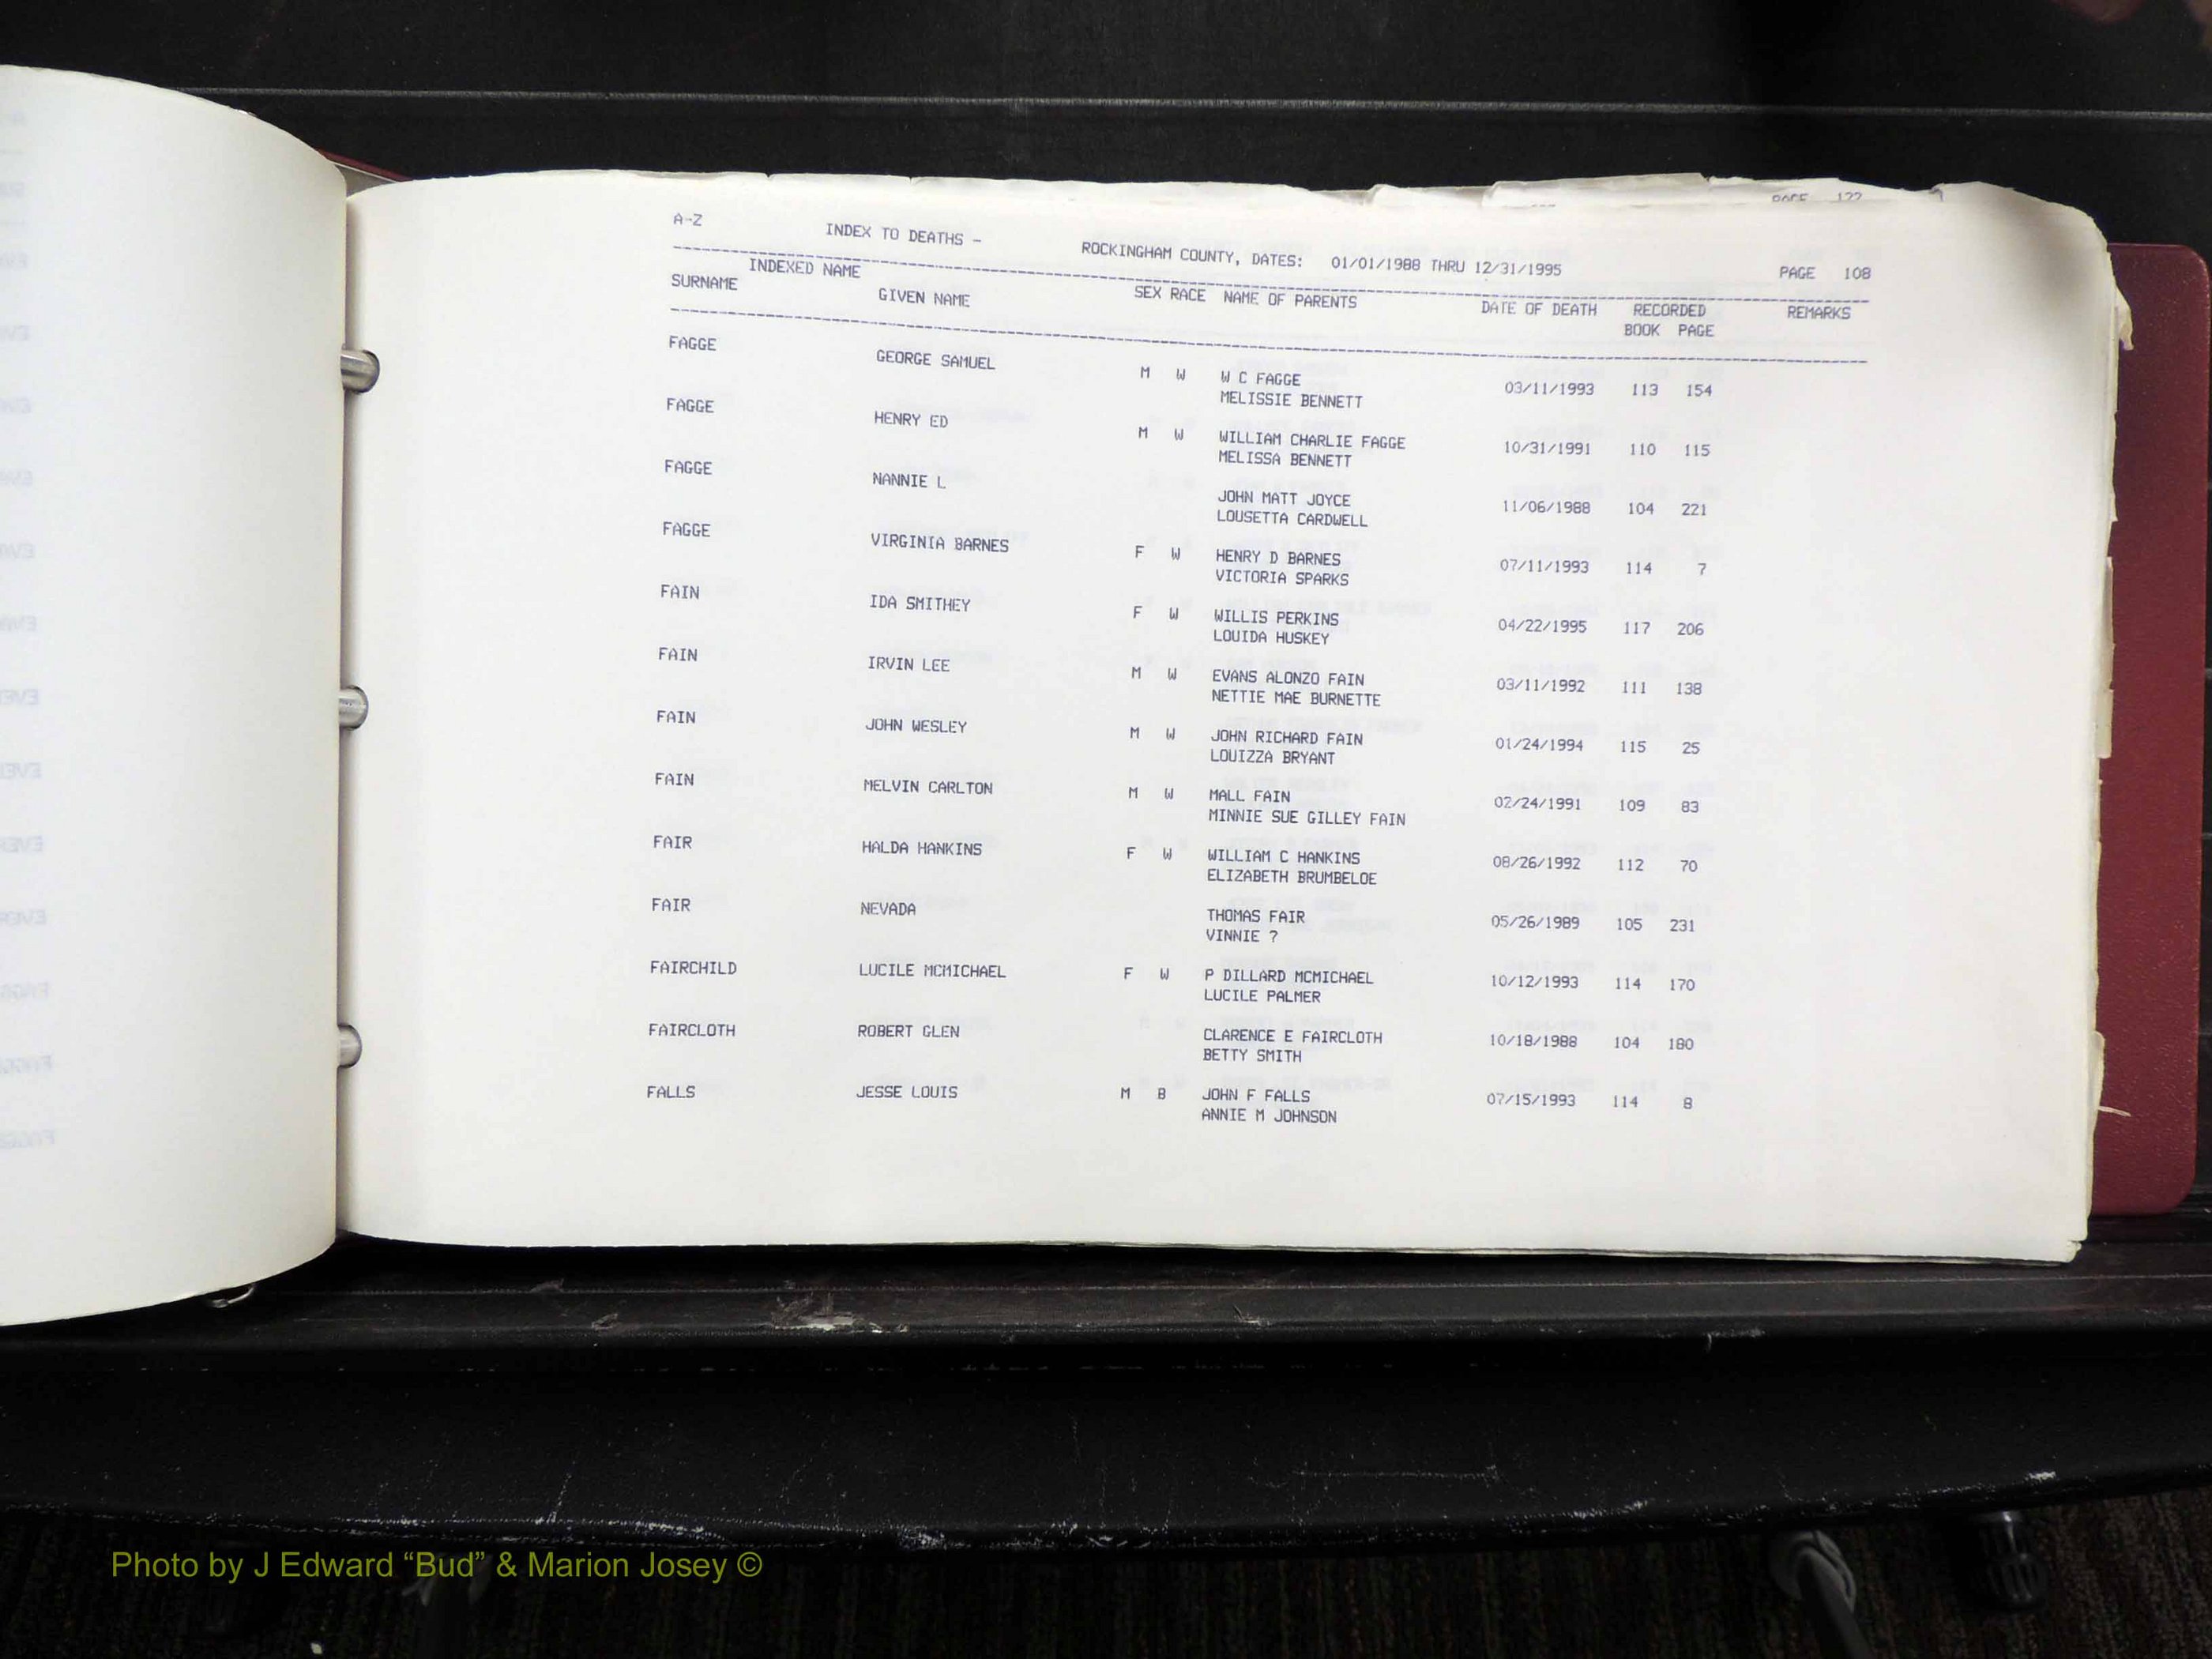 PAGE 122
A-Z INDEX TO DEATHS - ROCKINGHAM COUNTY, DATES: 01/01/1988 THRU 12/31/1995 PAGE 108
INDEXED NAME
SURNAME GIVEN NAME SEX RACE NAME OF PARENTS DATE OF DEATH RECORDED REMARKS
BOOK PAGE
FAGGE GEORGE SAMUEL M W W C FAGGE 03/11/1993 113 154
MELISSIE BENNETT
FAGGE HENRY ED M W WILLIAM CHARLIE FAGGE 10/31/1991 110 115
MELISSA BENNETT
FAGGE NANNIE L JOHN MATT JOYCE 11/06/1988 104 221
LOUSETTA CARDWELL
FAGGE VIRGINIA BARNES F W HENRY D BARNES 07/11/1993 114 7
VICTORIA SPARKS
FAIN IDA SMITHEY F W WILLIS PERKINS 04/22/1995 117 206
LOUIDA HUSKEY
FAIN IRVIN LEE M W EVANS ALONZO FAIN 03/11/1992 111 138
NETTIE MAE BURNETTE
FAIN JOHN WESLEY M W JOHN RICHARD FAIN 01/24/1994 115 25
LOUIZZA BRYANT
FAIN MELVIN CARLTON M W MALL FAIN 02/24/1991 109 83
MINNIE SUE GILLEY FAIN
FAIR HALDA HANKINS F W WILLIAM C HANKINS 08/26/1992 112 70
ELIZABETH BRUMBELOE
FAIR NEVADA THOMAS FAIR 05/26/1989 105 231
VINNIE ?
FAIRCHILD LUCILE MCMICHAEL F W P DILLARD MCMICHAEL 10/12/1993 114 170
LUCILE PALMER
FAIRCLOTH ROBERT GLEN CLARENCE E FAIRCLOTH 10/18/1988 104 180
BETTY SMITH
FALLS JESSE LOUIS M B JOHN F FALLS 07/15/1993 114 8
ANNIE M JOHNSON
Photo by J Edward “Bud” & Marion Josey ©